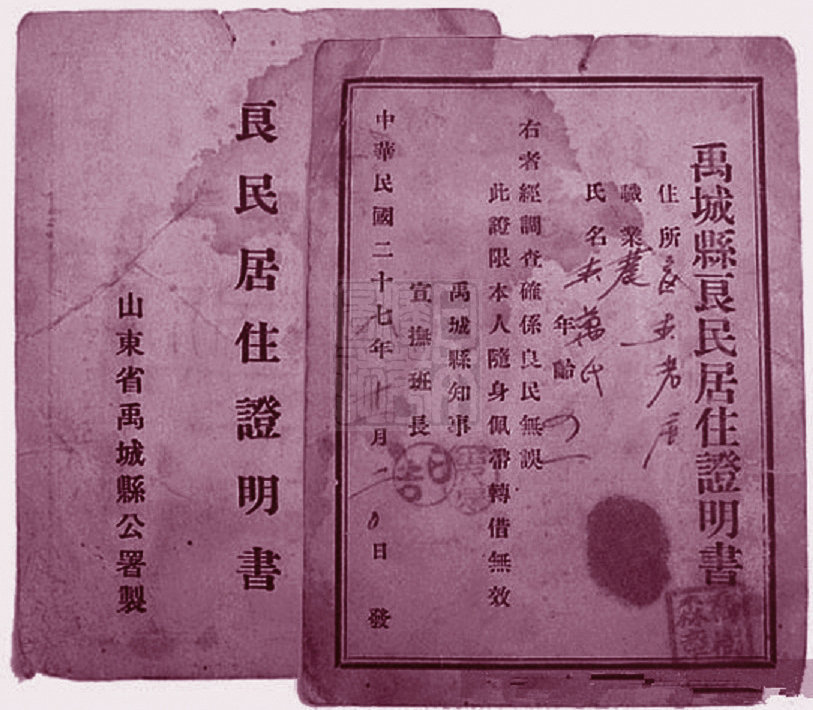 禹城縣良民居住證明書
住所
職業 農
氏名
年齡
右者經調查確係良民無誤
此證限本人隨身佩帶轉借無效
禹城縣知事
宣撫班長
中華民國二十七年十月 日 發
良民居住證明書
山東省禹城縣公署製